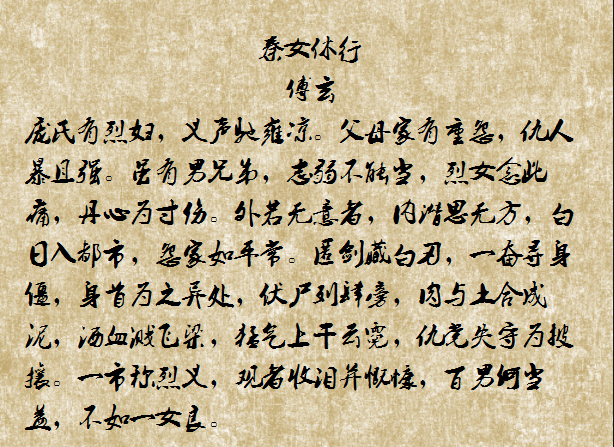 秦女休行
傅玄
庞氏有烈妇，义声驰雍凉。父母家有重怨，仇人
暴且强。虽有男兄弟，志弱不能当，烈女念此
痛，丹心为寸伤。外若无意者，内潜思无方，白
日入都市，怨家如平常。匿剑藏白刃，一奋寻身
僵，身首为之异处，伏尸列肆旁，肉与土合成
泥，洒血溅飞梁，猛气上干云霓，仇党失守为披
攘。一市称烈义，观者收泪并慨慷，百男何当
益，不如一女良。